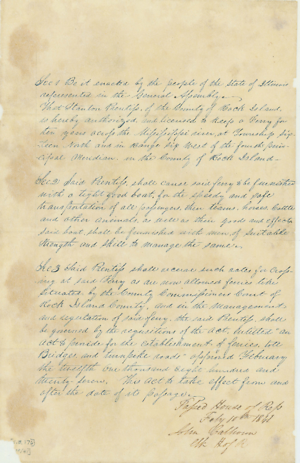 Sec 1 Be it enacted by the people of the State of Illinois
represented in the General Assembly.
That Stanton Prentiss, of the County of Rock Island
is hereby authorized and licensed to keep a Ferry for
ten years across the Mississippi river, at Township Six-
teen North and in range Six West of the fourth prin-
cipal Meridian in the County of Rock Island.
Sec 2 Said Prentiss, shall cause said ferry to be furnished
with a tight good boat, for the speedy and safe
transportation of all passengers, their teams, horses Cattle
and other animals, as well as their good and effects
said boat shall be furnished with men of suitable
strength and skill to manage the same.
Sec 3 Said Prentiss shall receive such rates for cross-
ing at said Ferry as are now allowed ferries
by the County Commissioners Court of
Rock Island County, and in the management
and regulation of said ferry, the said Prentiss shall
be governed by the requisitions of the Act, entitled "an
act to provide for the establishment of ferries, toll
Bridges and turnpike roads" approved February
the twelfth one thousand eight hundred and
twenty seven. This act to take effect from and
after the date of its passage.
Passed House of Reps
Feby 10th 1841
John Calhoun
Clk H of R